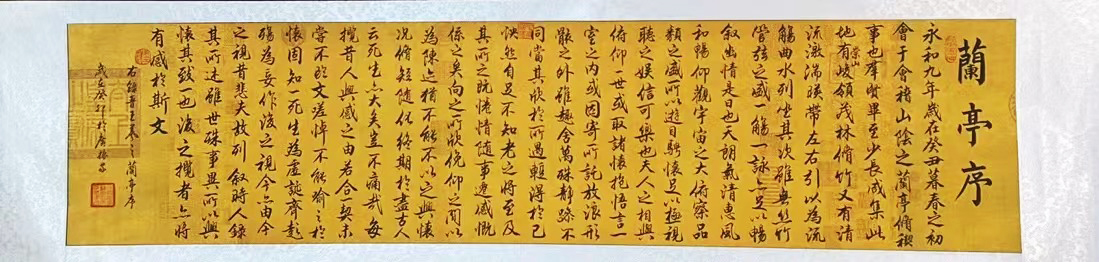 蘭亭序
永和九年歲在癸丑暮春之初
會于會稽山陰之蘭亭脩稧
事也羣賢畢至少長咸集此
地有崇山峻領茂林脩竹又有清
流激湍暎帶左右引以為流
觴曲水列坐其次雖無絲竹
管弦之盛一觴一詠亦足以暢
敘幽情是日也天朗氣清惠風
和暢仰觀宇宙之大俯察品
類之盛所以遊目騁懷足以極視
聽之娛信可樂也夫人之相與
俯仰一世或取諸懷抱悟言一
室之內或因寄所託放浪形
骸之外雖趣舍萬殊靜躁不
同當其欣於所遇蹔得於己
怏然自足不知老之將至及
其所之既惓情隨事遷感慨
係之矣向之所欣俛仰之閒以
為陳迹猶不能不以之興懷
況脩短隨化終期於盡古人
云死生亦大矣豈不痛哉每
攬昔人興感之由若合一契未
嘗不臨文嗟悼不能喻之於
懷固知一死生為虛誕齊彭
殤為妄作後之視今亦由今
之視昔悲夫故列敘時人錄
其所述雖世殊事異所以興
懷其致一也後之攬者亦將
有感於斯文
右錄晉王羲之蘭亭序
歲在癸卯於